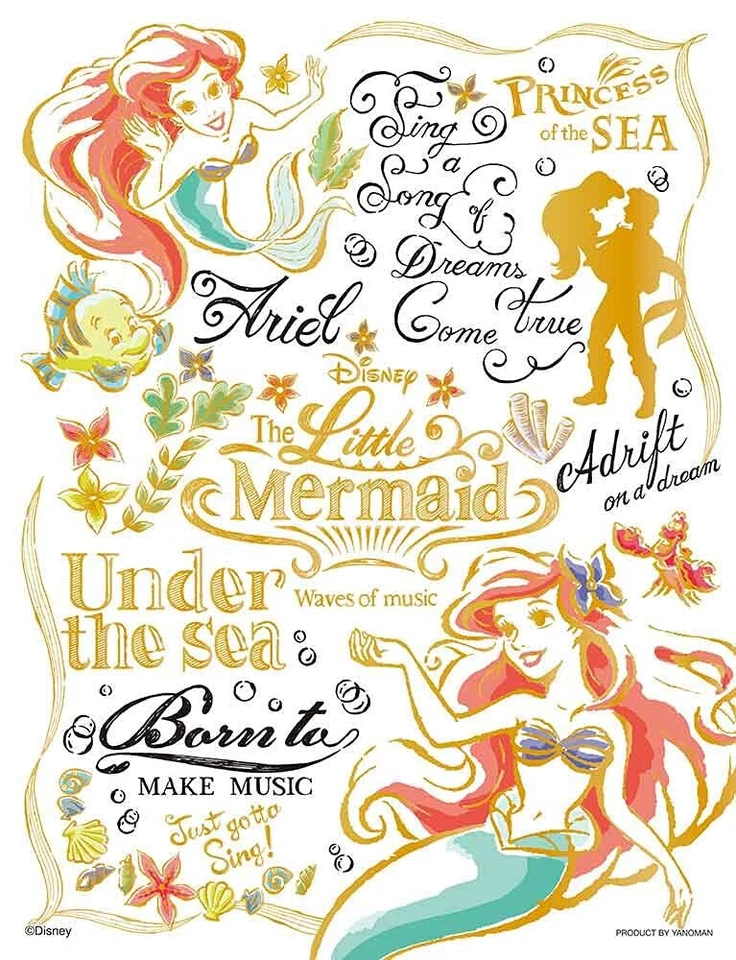 Sing
a
Song of
Dreams
Come True
PRINCESS
of the SEA
Ariel
Disney
The Little
Mermaid
Adrift
on a dream
Under
the sea
Waves of music
Born to
MAKE MUSIC
Just gotta
Sing!
©Disney
PRODUCT BY YANOMAN